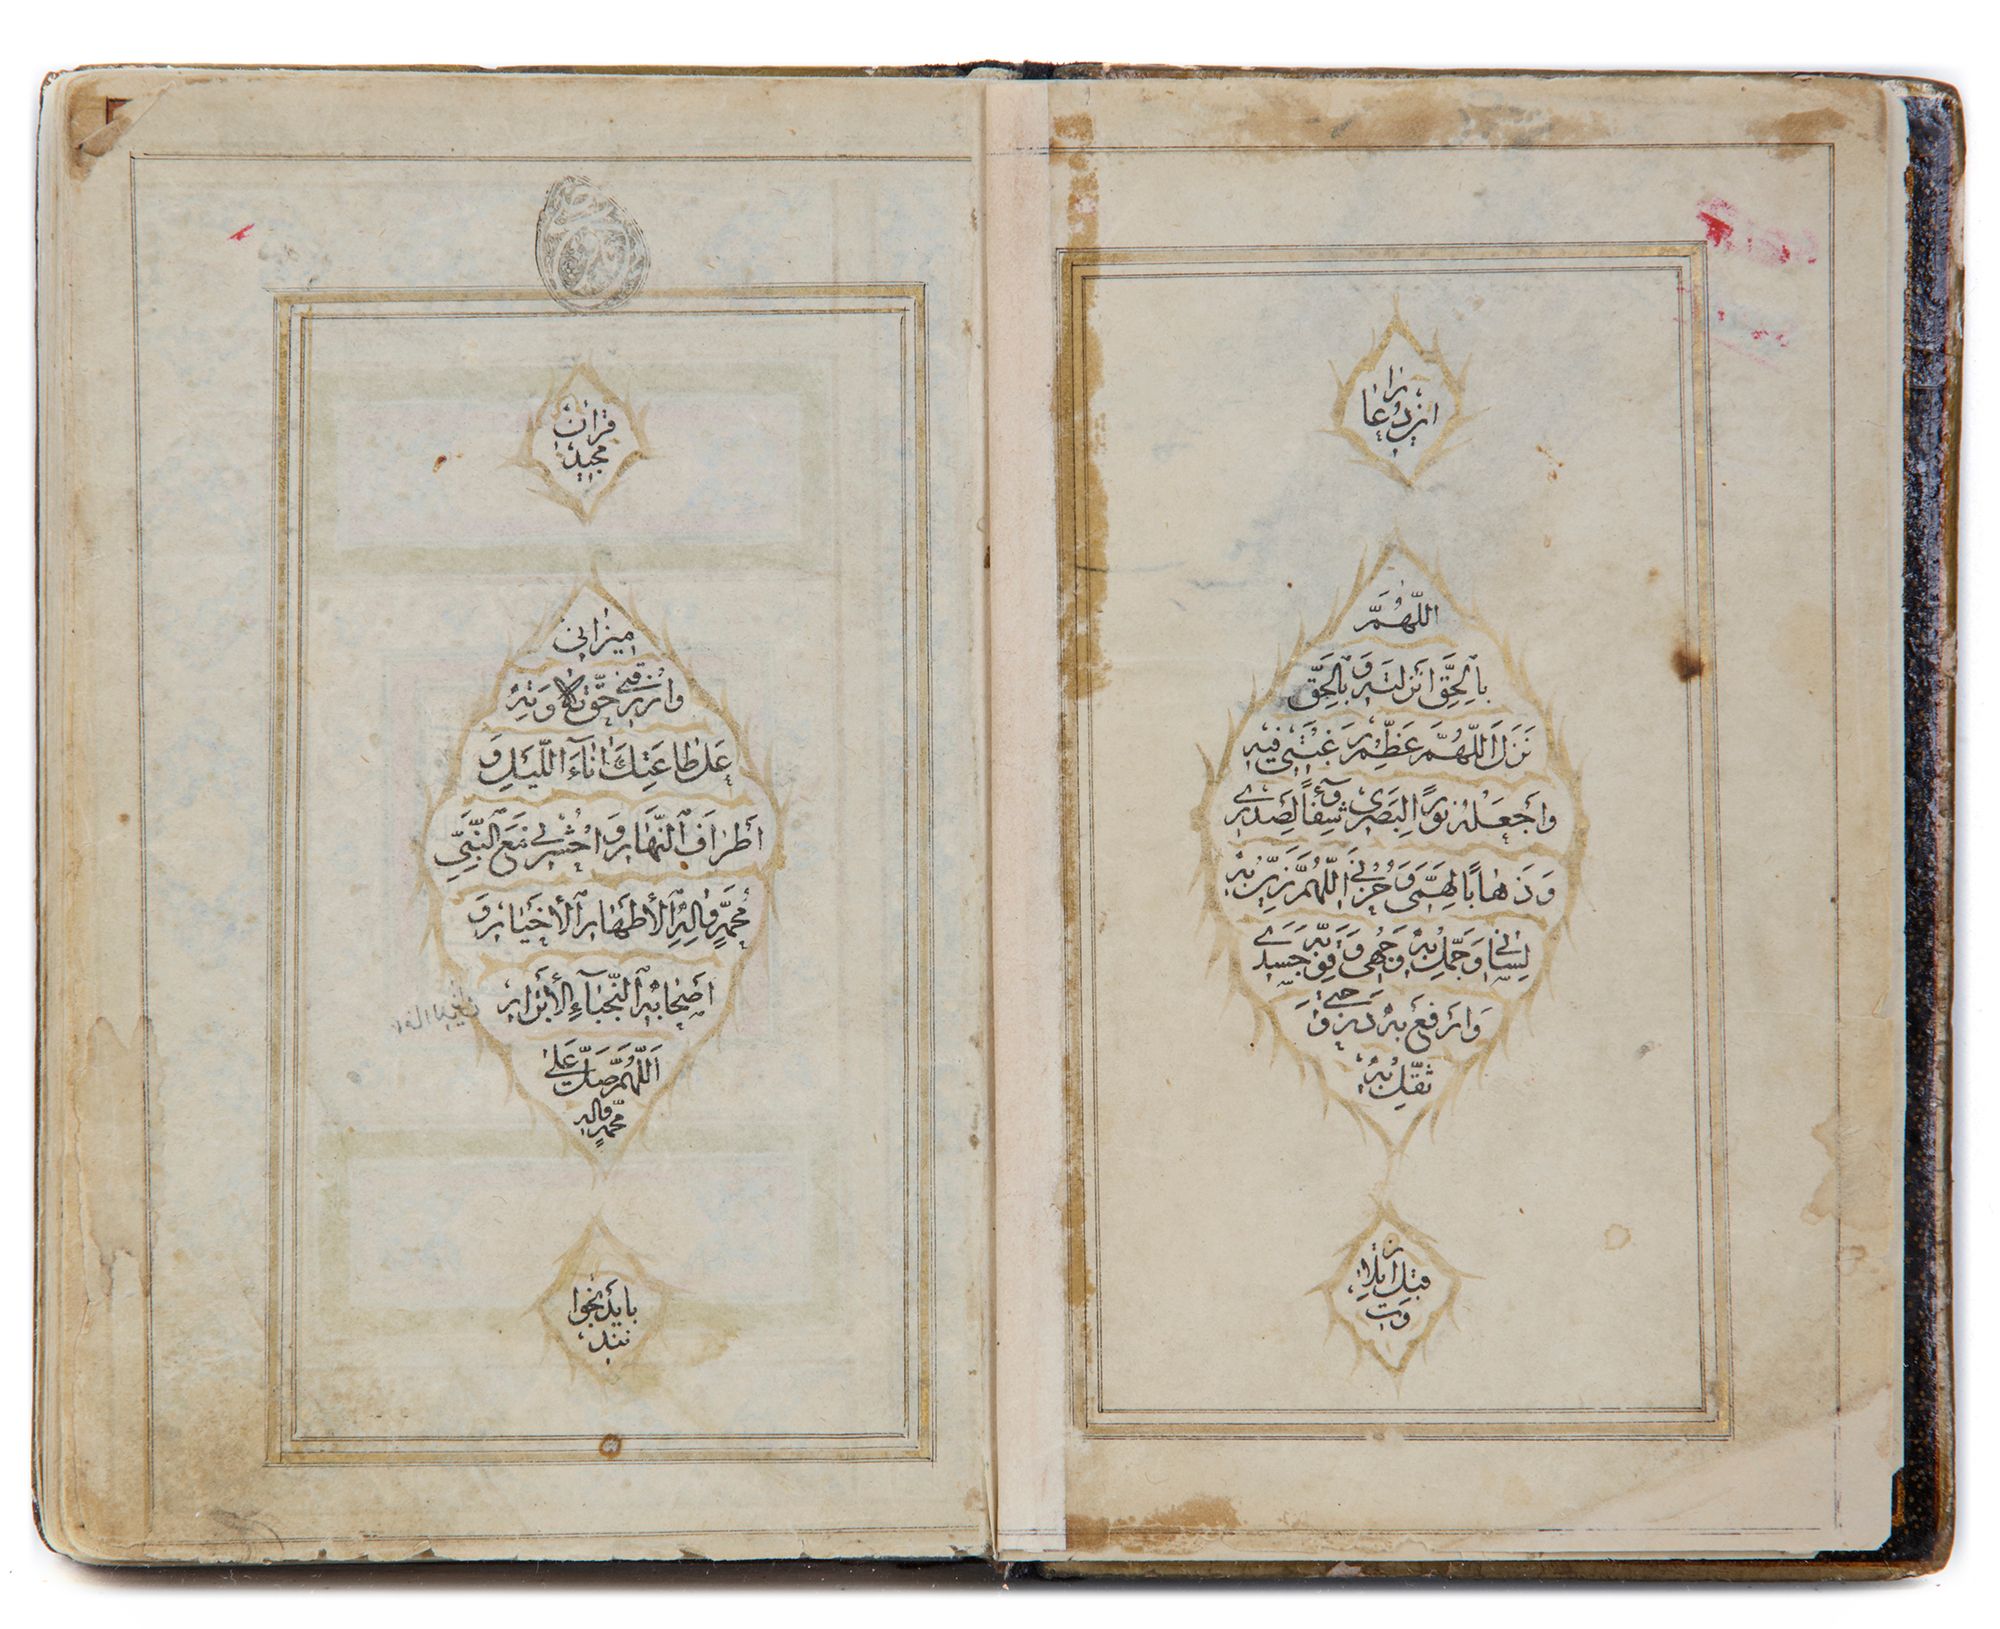 این دعا را
اللّهُمَّ
بِالحَقِّ اَنزَلتَهُ وَ بِالحَقِّ
نَزَلَ اَللّهُمَّ عَظِّم رَغبَتی فیهِ
وَاجعَلهُ نورًا لِبَصَری وَ شِفآءً لِصَدری
وَذَهابًا لِهَمّی وَ حُزنی اَللّهُمَّ زَیِّن بِهِ
لِسانی وَ جَمِّل بِهِ وَجهی وَ قَوِّ بِهِ جَسَدی
وَارفَع بِهِ دَرَجَتی وَ
ثَقِّل بِهِ
قبل از تلا
وت
قران
مجید
میزانی
وَارزُقنی حَقَّ تِلاوَتِهِ
عَلی طاعَتِکَ اناءَ اللَّیلِ وَ
اَطرافَ النَّهارِ وَاحشُرنی مَعَ النَّبِیِّ
مُحَمَّدٍ وَالِهِ الأَطهارِ الأَخیارِ وَ
اَصحابِهِ النُّجَبآءِ الأَبرارِ
اَللّهُمَّ صَلِّ عَلی
مُحَمَّدٍ وَالِهِ
باید بخوا
نند